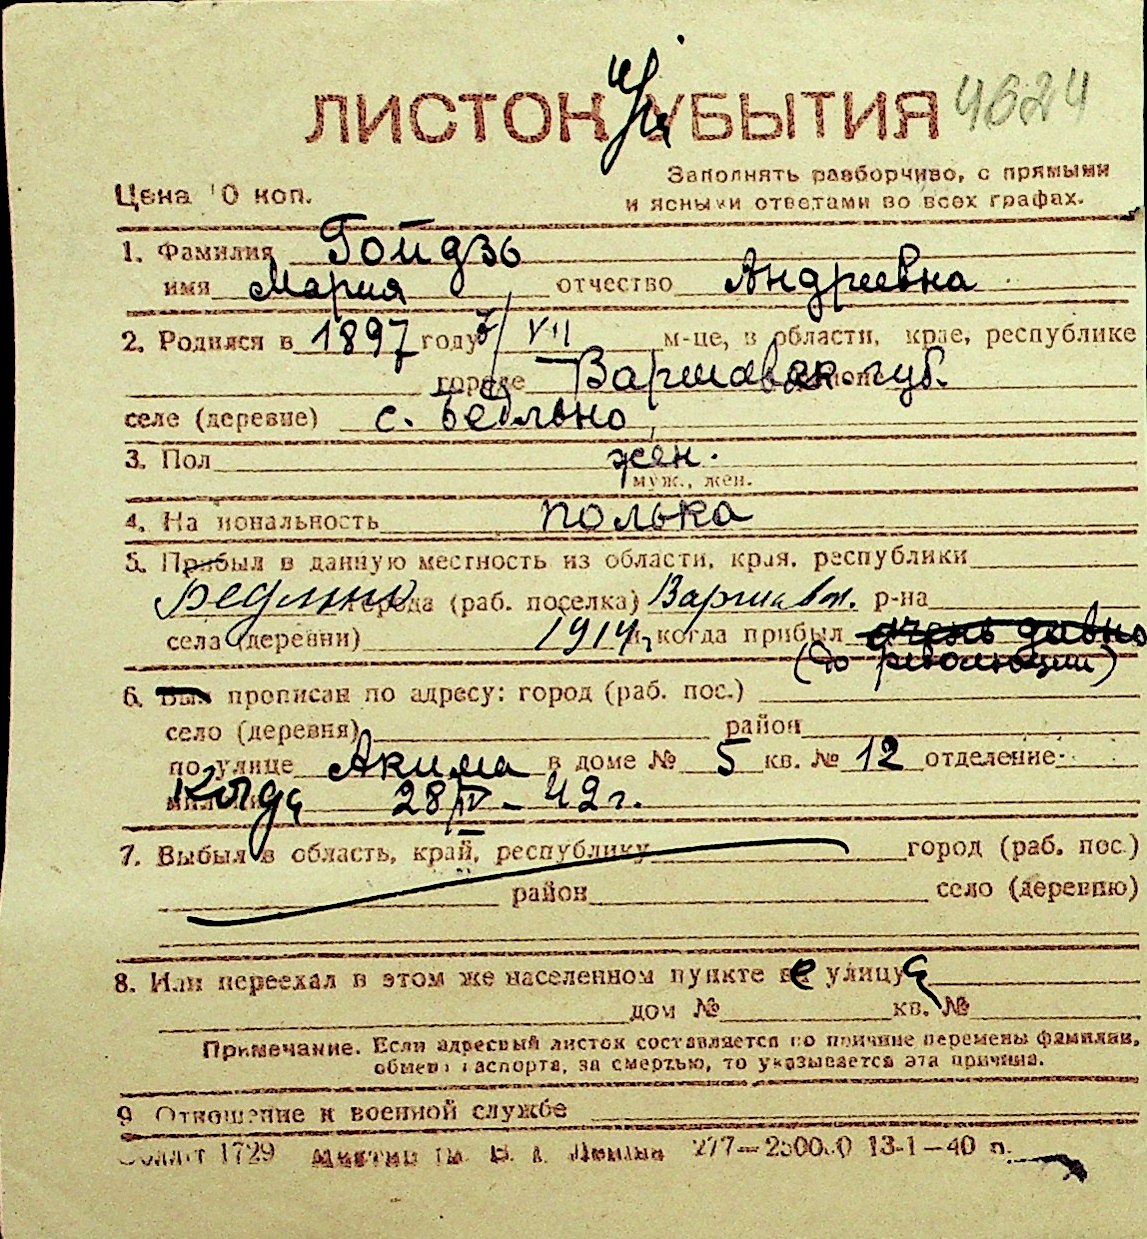 ЛИСТОК УБЫТИЯ 4624
Заполнять разборчиво, с прямыми
Цена 10 коп. и ясными ответами во всех графах.
1. Фамилия Гойдзь
имя Мария отчество Андреевна
2. Родился в 1897 году 3/VII м-це, в области, крае, республике
городе Варшавск. губ.
селе (деревне) с. Бедльно,
3. Пол жен.
муж., жен.
4. Национальность полька
5. Прибыл в данную местность из области, края, республики
Бедльно города (раб. поселка) Варшавск. р-на
села (деревни) 1914 г. когда прибыл очень давно
(до революции)
6. Был прописан по адресу: город (раб. пос.)
село (деревня) район
по улице Акима в доме № 5 кв. № 12 отделение
милиции Когда 28/IV – 42 г.
7. Выбыл в область, край, республику город (раб. пос.)
район село (деревню)
8. Или переехал в этом же населенном пункте на улицу
дом № кв. №
Примечание. Если адресный листок составляется по причине перемены фамилии,
обмена паспорта, за смертью, то указывается эта причина.
9 Отношение к военной службе
1729 Ленина 277—25000 13-1—40 п.